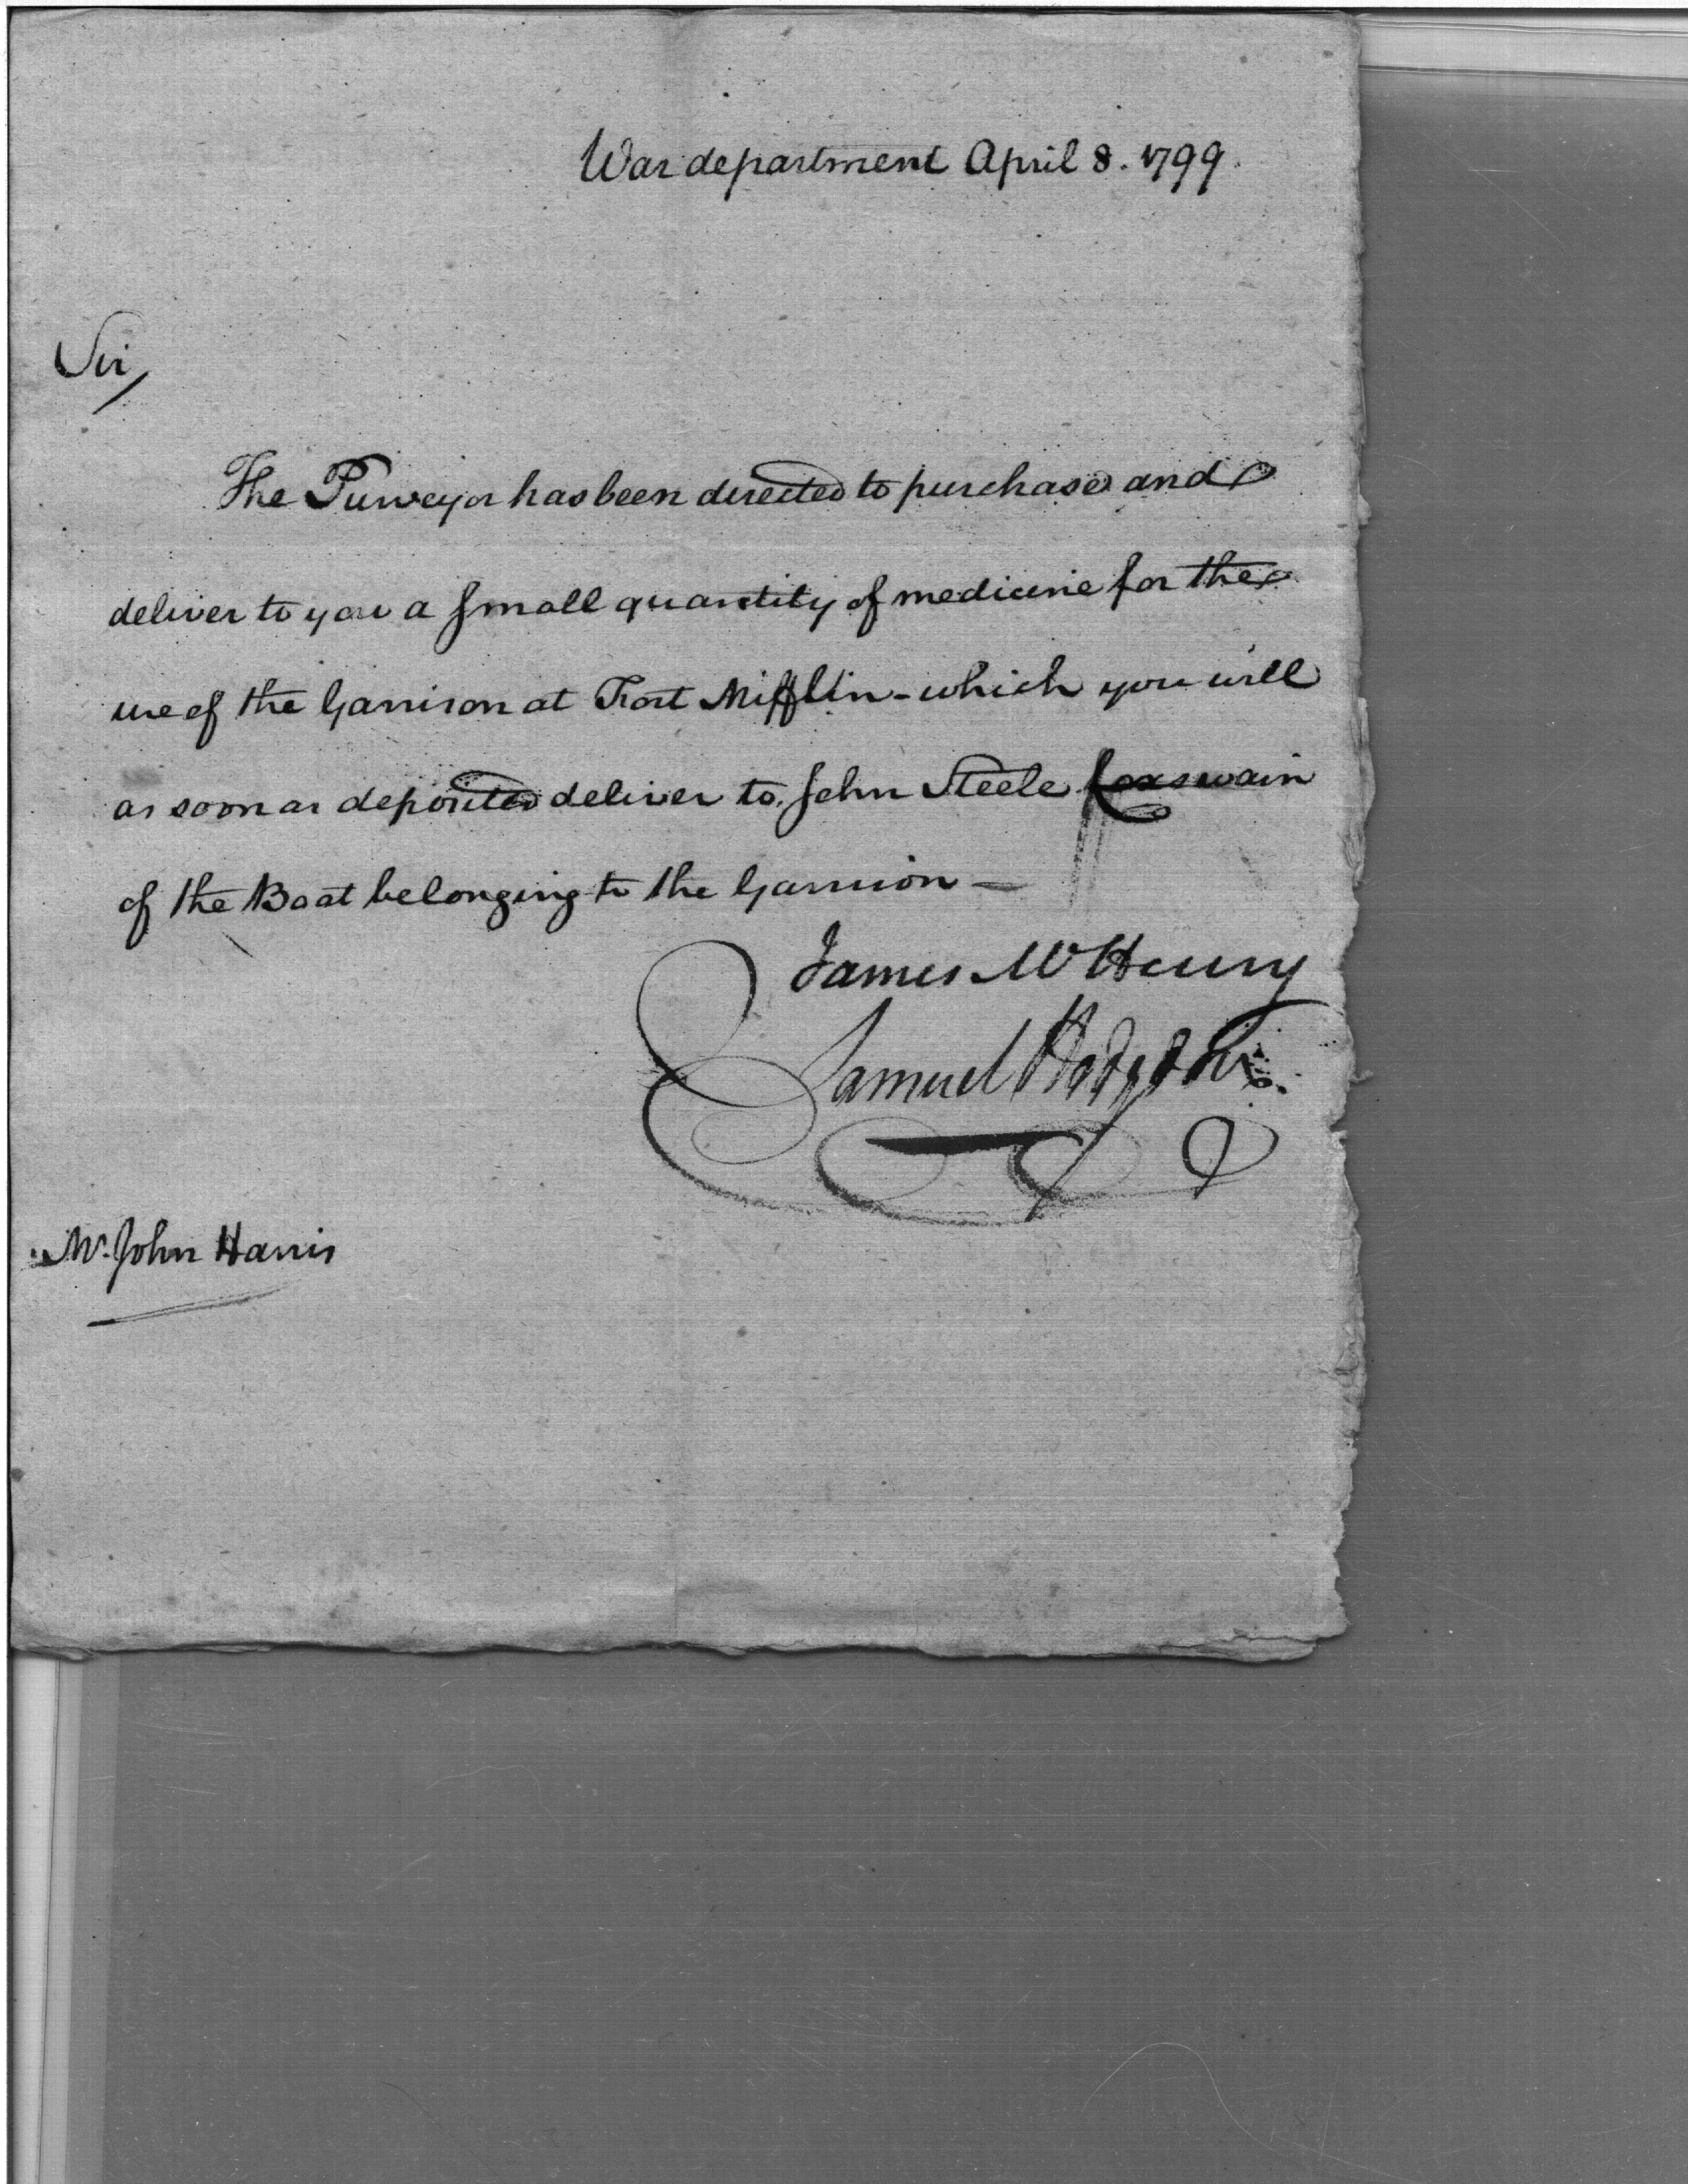 War department April 8. 1799.
Sir,
The Purveyor has been directed to purchase and
deliver to you a small quantity of medicine for the
use of the Garrison at Fort Mifflin - which you will
as soon as deposited deliver to John Steele Coxswain
of the Boat belonging to the Garrison -
James McHenry
Samuel Hodgdon
Mr. John Harris